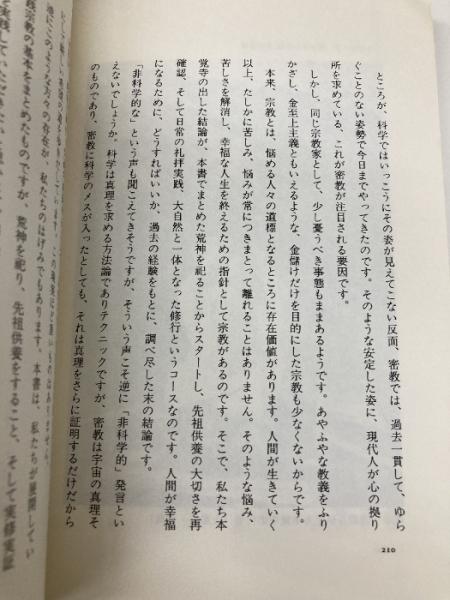 ところが、科学ではいっこうにその姿が見えてこない反面、密教では、過去一貫して、ゆら
ぐことのない姿勢で今日までやってきたのです。そのような安定した姿に、現代人が心の拠り
所を求めている、これが密教が注目される要因です。
しかし、同じ宗教家として、少し憂うべき事態もままあるようです。あやふやな教義をふり
かざし、金至上主義ともいえるような、金儲けだけを目的にした宗教も少なくないからです。
本来、宗教とは、悩める人々の道標となるところに存在価値があります。人間が生きていく
以上、たしかに苦しみ、悩みが常につきまとって離れることはありません。そのような悩み、
苦しさを解消し、幸福な人生を終えるための指針として宗教があるのです。そこで、私たち本
覚寺の出した結論が、本書でまとめた荒神を祀ることからスタートし、先祖供養の大切さを再
確認、そして日常の礼拝実践、大自然と一体となった修行というコースなのです。人間が幸福
になるために、どうすればいいか、過去の経験をもとに、調べ尽した末の結論です。
「非科学的な」という声も聞こえてきそうですが、そういう声こそ逆に「非科学的」発言とい
えないでしょうか。科学は真理を求める方法論でありテクニックですが、密教は宇宙の真理そ
のものであり、密教に科学のメスが入ったとしても、それは真理をさらに証明するだけだから
210
私たちのはげみでもあります。本書は、私たちが展開してい
宗教の基本をまとめたものですが、荒神を祀り、先祖供養をすること、そして実修実証